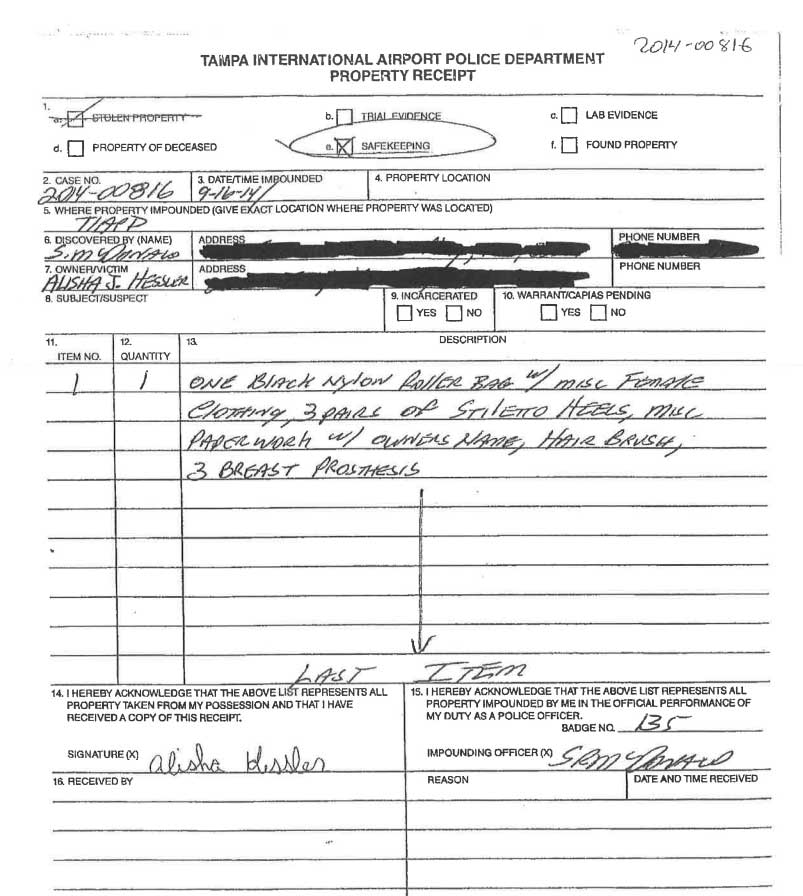 2014-00816
TAMPA INTERNATIONAL AIRPORT POLICE DEPARTMENT
PROPERTY RECEIPT
1.
a. STOLEN PROPERTY
b. TRIAL EVIDENCE
c. LAB EVIDENCE
d. PROPERTY OF DECEASED
e. SAFEKEEPING
f. FOUND PROPERTY
2. CASE NO.
2014-00816
3. DATE/TIME IMPOUNDED
9-16-14/
4. PROPERTY LOCATION
5. WHERE PROPERTY IMPOUNDED (GIVE EXACT LOCATION WHERE PROPERTY WAS LOCATED)
TIAPD
6. DISCOVERED BY (NAME)
S. McDonald
ADDRESS
PHONE NUMBER
7. OWNER/VICTIM
ALISHA J. HESSLER
ADDRESS
PHONE NUMBER
8. SUBJECT/SUSPECT
9. INCARCERATED
YES NO
10. WARRANT/CAPIAS PENDING
YES NO
11. ITEM NO.
12. QUANTITY
13. DESCRIPTION
1 1 ONE BLACK NYLON ROLLER BAG W/ MISC FEMALE
CLOTHING, 3 PAIRS OF STILETTO HEELS, MISC
PAPERWORK W/ OWNERS NAME, HAIR BRUSH,
3 BREAST PROSTHESIS
LAST ITEM
14. I HEREBY ACKNOWLEDGE THAT THE ABOVE LIST REPRESENTS ALL
PROPERTY TAKEN FROM MY POSSESSION AND THAT I HAVE
RECEIVED A COPY OF THIS RECEIPT.
SIGNATURE (X) Alisha Hessler
15. I HEREBY ACKNOWLEDGE THAT THE ABOVE LIST REPRESENTS ALL
PROPERTY IMPOUNDED BY ME IN THE OFFICIAL PERFORMANCE OF
MY DUTY AS A POLICE OFFICER.
BADGE NO. 135
IMPOUNDING OFFICER (X) SRMcDonald
16. RECEIVED BY
REASON
DATE AND TIME RECEIVED